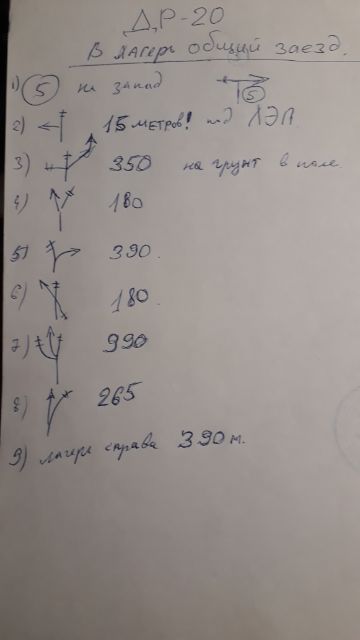 ДР-20
В лагерь общий заезд.
1) 5 на запад 5
2) 15 метров! под ЛЭП
3) 350 на грунт в поле
4) 180
5) 390.
6) 180.
7) 990
8) 265
9) лагерь справа 390 м.